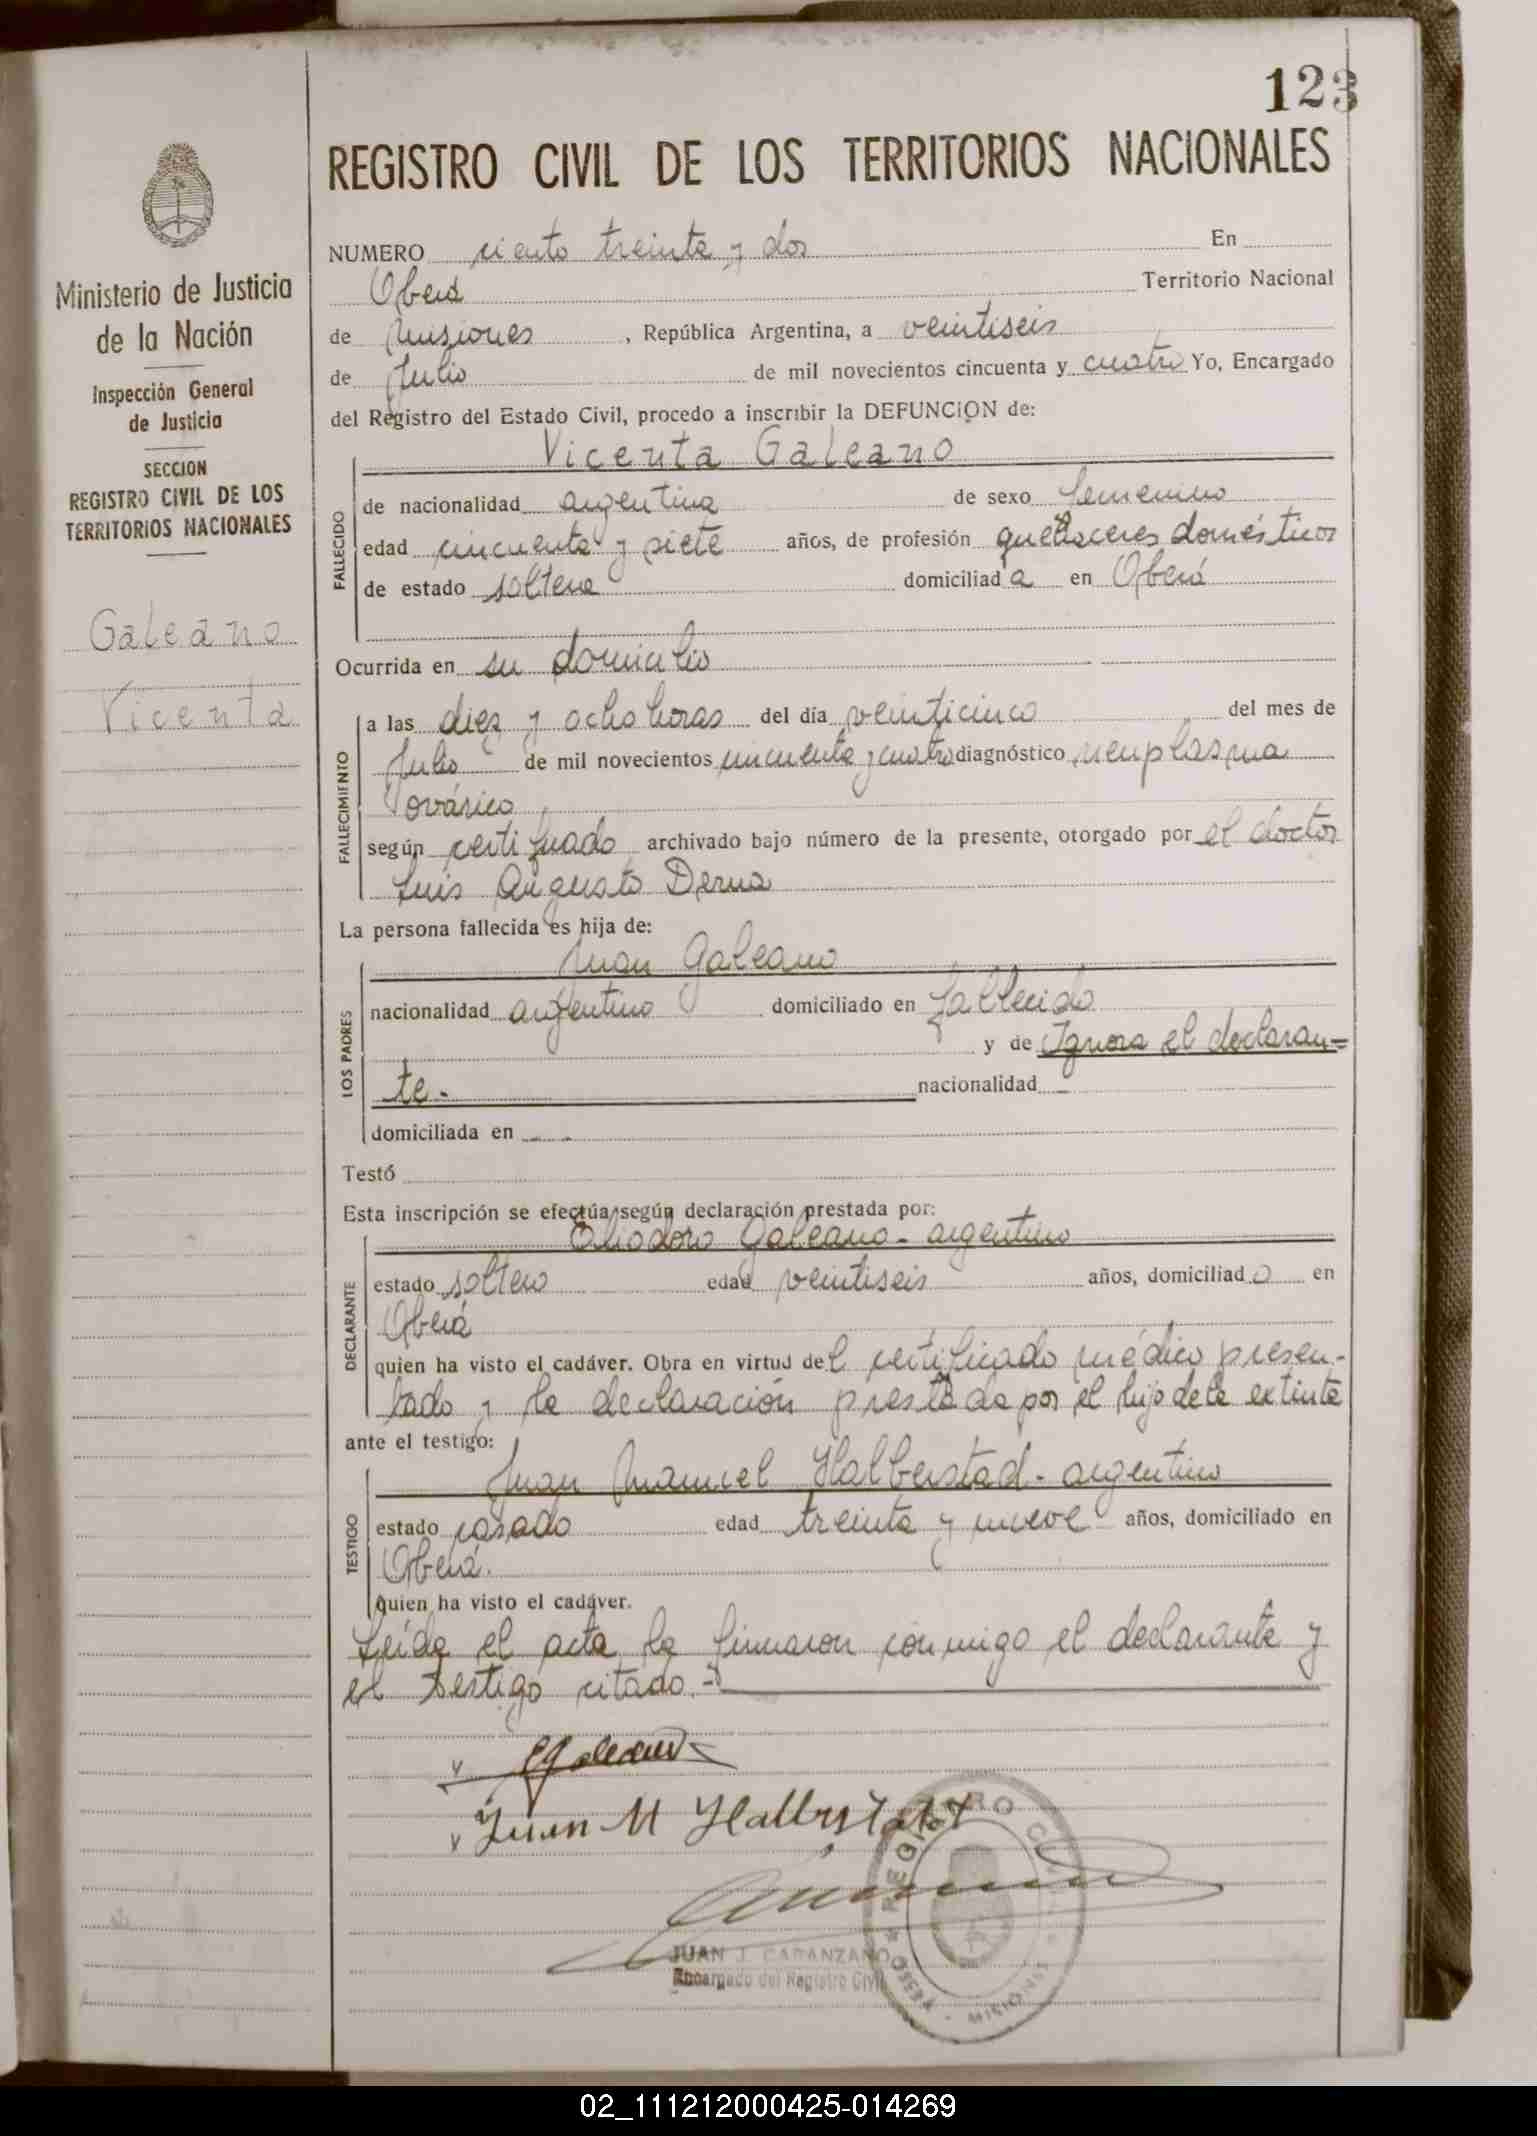 123
REGISTRO CIVIL DE LOS TERRITORIOS NACIONALES
Ministerio de Justicia
de la Nación
Inspección General
de Justicia
SECCION
REGISTRO CIVIL DE LOS
TERRITORIOS NACIONALES
Galeano
Vicenta
NUMERO ciento treinta y dos En
Oberá Territorio Nacional
de Misiones, República Argentina, a veintiseis
de Julio de mil novecientos cincuenta y cuatro Yo, Encargado
del Registro del Estado Civil, procedo a inscribir la DEFUNCION de:
Vicenta Galeano
FALLECIDO
de nacionalidad argentina de sexo femenino
edad cincuenta y siete años, de profesión quehaceres domésticos
de estado soltera domiciliada en Oberá
Ocurrida en su domicilio
FALLECIMIENTO
a las diez y ocho horas del día veinticinco del mes de
Julio de mil novecientos cincuenta y cuatro diagnóstico neuplasma
ovárico
según certificado archivado bajo número de la presente, otorgado por el doctor
Luis Augusto Derna
La persona fallecida es hija de:
Juan Galeano
LOS PADRES
nacionalidad argentino domiciliado en fallecido
y de Ignora el declaran=
te.- nacionalidad -
domiciliada en - -
Testó
Esta inscripción se efectúa según declaración prestada por:
Eliodoro Galeano - argentino
DECLARANTE
estado soltero edad veintiseis años, domiciliado en
Oberá
quien ha visto el cadáver. Obra en virtud del certificado médico presen-
tado y la declaración prestada por el hijo de la extinta
ante el testigo:
Juan Manuel Halberstad - argentino
TESTIGO
estado casado edad treinta y nueve años, domiciliado en
Oberá.
quien ha visto el cadáver.
Leída el acta, la firmaron conmigo el declarante y
el testigo citado.-
EGaleano
Juan M Halberstadt
JUAN J. CABANZANO
Encargado del Registro Civil
REGISTRO CIVIL
MISIONES
02_111212000425-014269